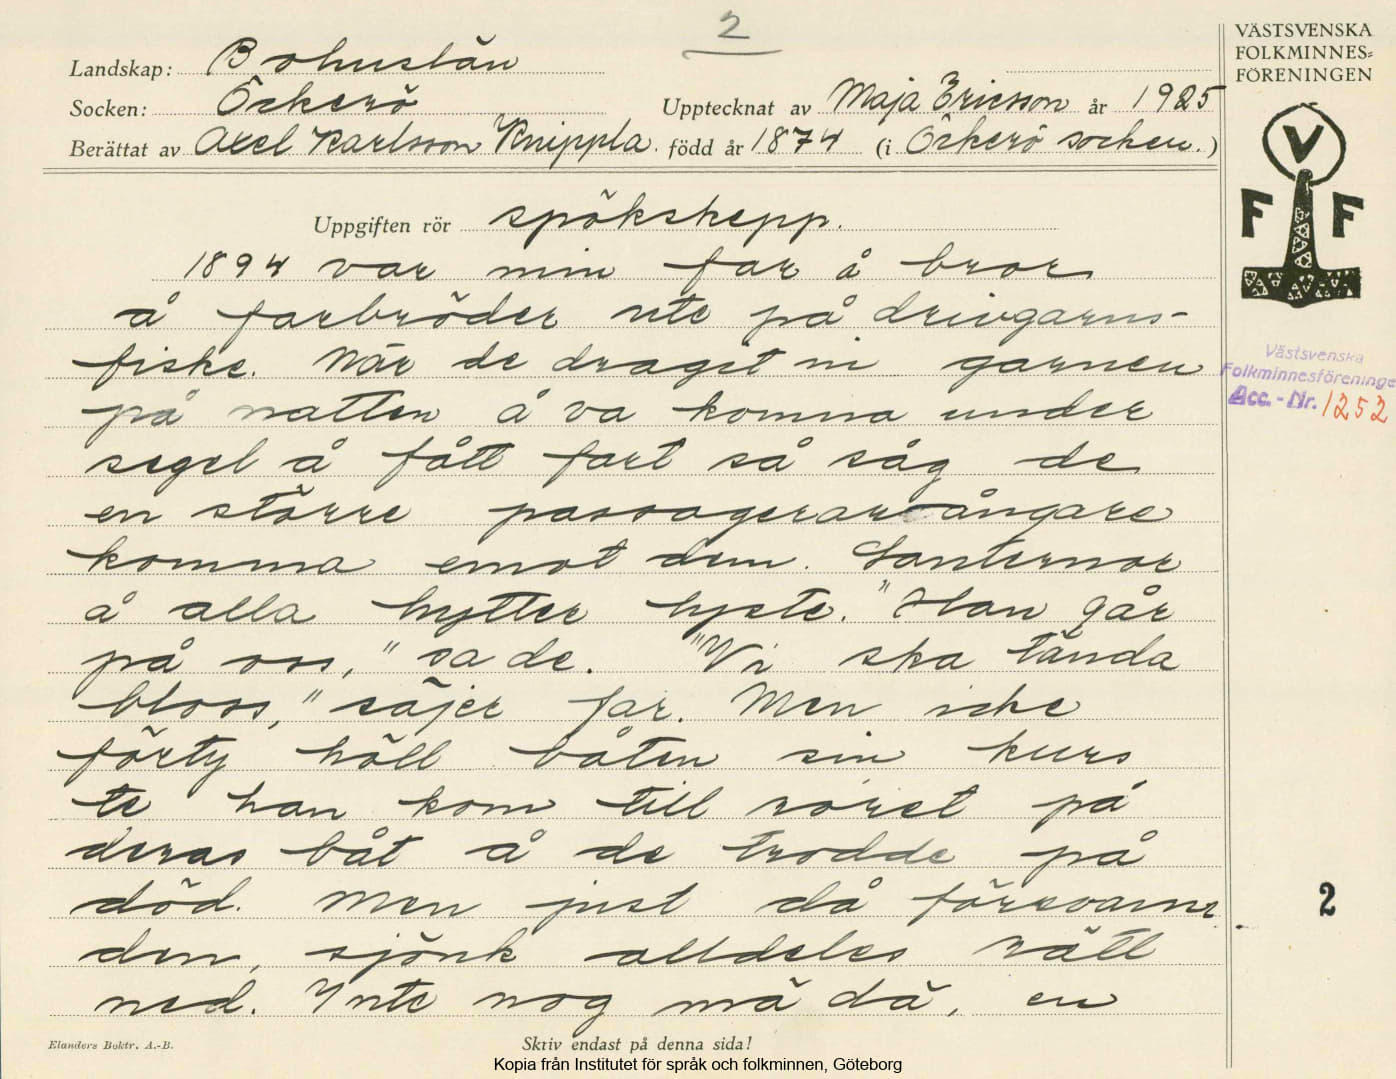 2
VÄSTSVENSKA
FOLKMINNES=
FÖRENINGEN
Landskap: Bohuslän
Socken: Öckerö
Upptecknat av Maja Ericsson år 1925
Berättat av Axel Karlsson Knippla. född år 1874 (i Öckerö socken.)
V
F F
Uppgiften rör spökskepp.
1894 var min far å bror
å farbröder ute på drivgarns-
fiske. När de dragit in garnen
på natten å va komna under
segel å fått fart så såg de
en större passagerarångare
komma emot dem. Lanternor
å alla hytter lyste. "Han går
på oss," sa de. "Vi ska tända
bloss," säjer far. Men icke
förty höll båten sin kurs
te han kom till roret på
deras båt å de trodde på
död. Men just då försvann
den, sjönk alldeles rätt
ned. Inte nog mä dä, en
Västsvenska
Folkminnesföreninge
Acc.-Nr. 1252
2
Elanders Boktr. A.-B.
Skriv endast på denna sida!
Kopia från Institutet för språk och folkminnen, Göteborg